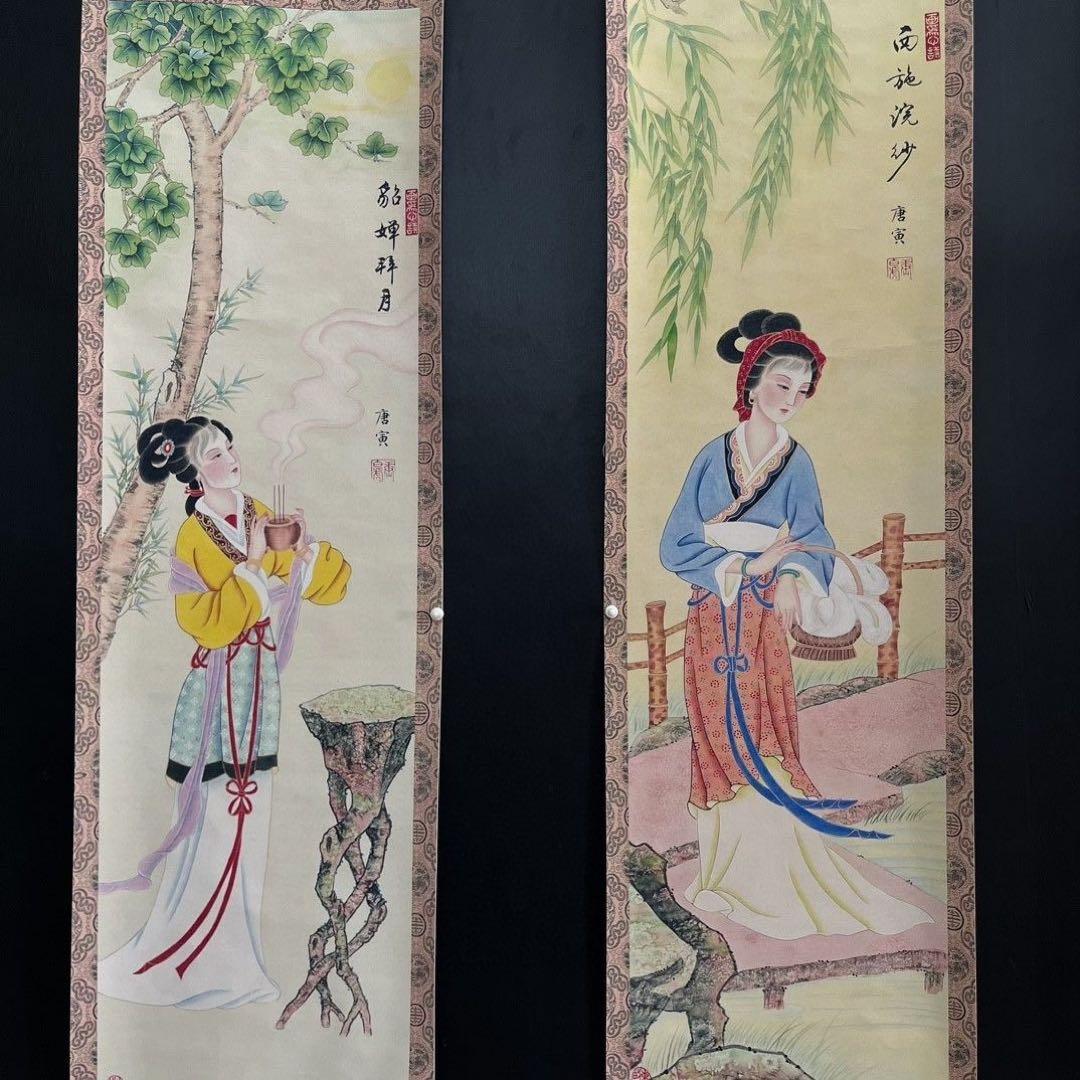 貂蟬拜月
唐寅
西施浣紗
唐寅